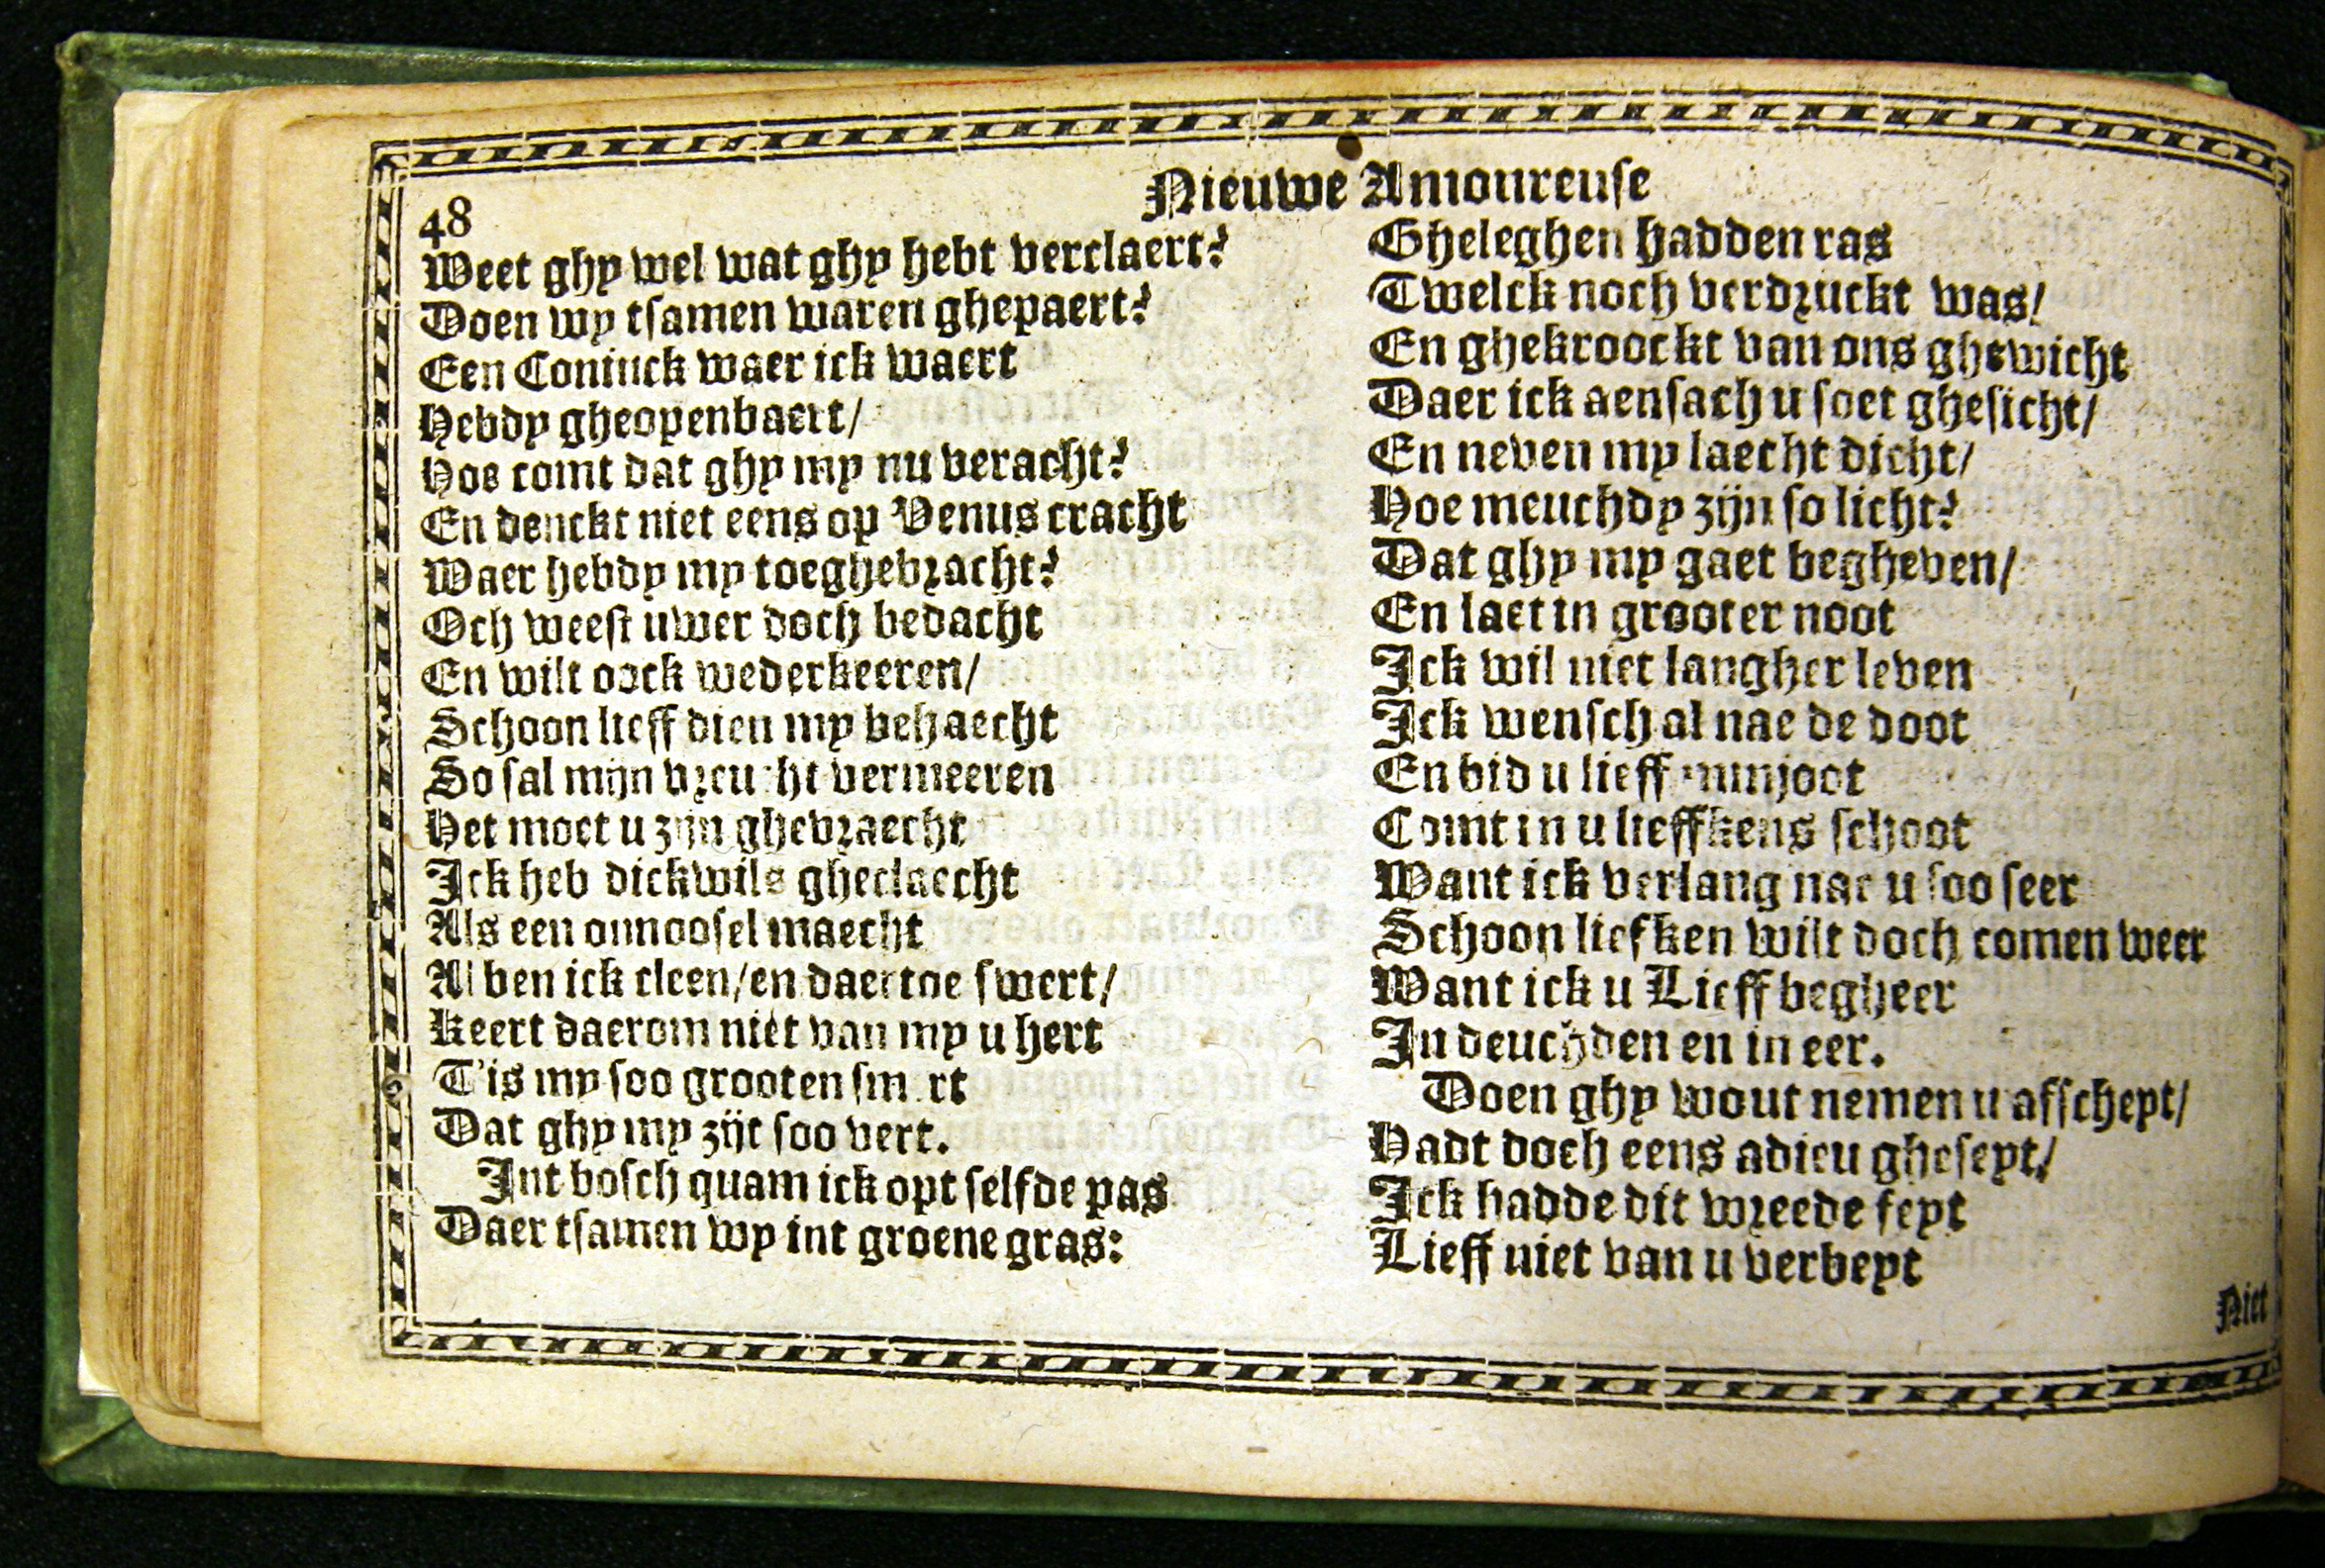 Nieuwe Amoureuse
48
Weet ghy wel wat ghy hebt verclaert?
Doen wy tsamen waren ghepaert?
Een Coninck waer ick waert
Hebdy gheopenbaert/
Hoe comt dat ghy my nu veracht?
En denckt niet eens op Venus cracht
Waer hebdy my toeghebracht?
Och weest uwer doch bedacht
En wilt oock wederkeeren/
Schoon lieff dien my behaecht
So sal mijn vreucht vermeeren
Het moet u zijn ghebraecht
Ick heb dickwils gheclaecht
Als een onnoosel maecht
Al ben ick cleen/en daer toe swert/
Keert daerom niet van my u hert
T'is my soo grooten smert
Dat ghy my zijt soo vert.
Int bosch quam ick opt selfde pas
Daer tsamen wy int groene gras:
Gheleghen hadden ras
Twelck noch verdruckt was/
En ghekroockt van ons ghewicht
Daer ick aensach u soet ghesicht/
En neven my laecht dicht/
Hoe meuchdy zijn so licht?
Dat ghy my gaet begheven/
En laet in grooter noot
Ick wil niet langher leven
Ick wensch al nae de doot
En bid u lieff minjoot
Comt in u lieffkens schoot
Want ick verlang nae u soo seer
Schoon liefken wilt doch comen weer
Want ick u Lieff begheer
In deuchden en in eer.
Doen ghy wout nemen u afscheyt/
Hadt doch eens adieu gheseyt/
Ick hadde dit wreede feyt
Lieff niet van u verbeyt
Niet